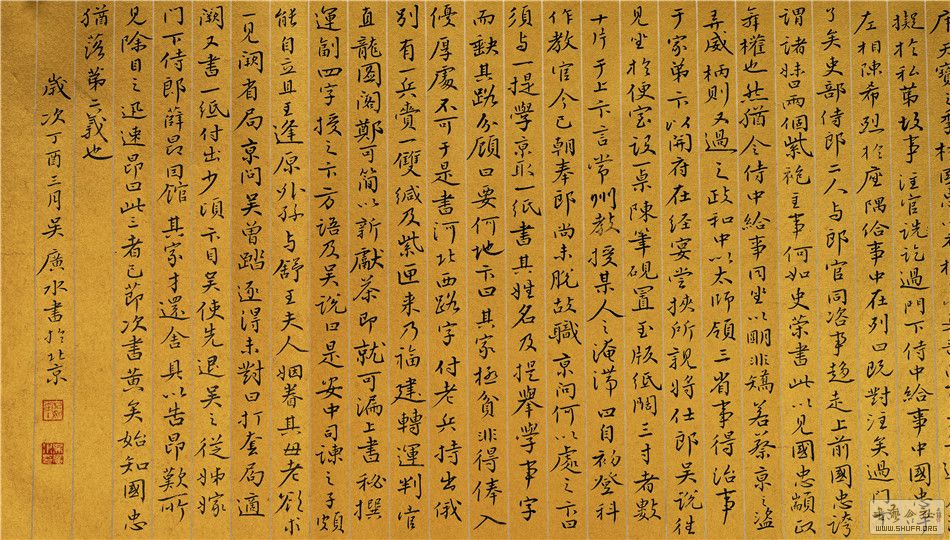 擬於私第故事注官訖過門下侍中給事中國忠
左相陳希烈於座隅給事中在列曰既對注矣過門
了矣吏部侍郎二人与郎官同咨事趨走上前國忠誇
謂諸妹曰兩個紫袍主事何如史策書此以見國忠顓政
舞權也然猶令侍中給事同坐以明非矯若蔡京之盜
弄威柄則又過之政和中以太師領三省事得治事
于家弟卞以開府在經宴嘗挾所親將仕郎吳說往
見坐於便室設一桌陳筆硯置玉版紙闊三寸者數
十片于上卞言常州教授某人之淹滯曰自初登科
作教官今已朝奉郎尚未脫故職京問何以處之卞曰
須与一提學京取一紙書其姓名及提舉學事字
而缺其路分顧曰要何地卞曰其家極貧非得俸入
優厚處不可于是書河北西路字付老兵持出俄
別有一兵賫一雙緘及紫匣来乃福建轉運判官
直龍圖閣鄭可簡以新獻茶即就可漏上書秘撰
運副四字授之卞方語及吳說曰是安中司諫之子頗
能自立且王逢原外孫与舒王夫人姻眷其母老欲求
一見闕省局京問吳曾踏逐得未對曰打套局適
闕又書一紙付出少頃卞目吳使先退吳之從姊嫁
門下侍郎薛昂因館其家才還舍具以告昂歎所
見除目之迅速昂曰此三者已節次書黄矣始知國忠
猶落第二義也
歲次丁酉三月吳廣水書於北京
WWW.SHUFA.ORG